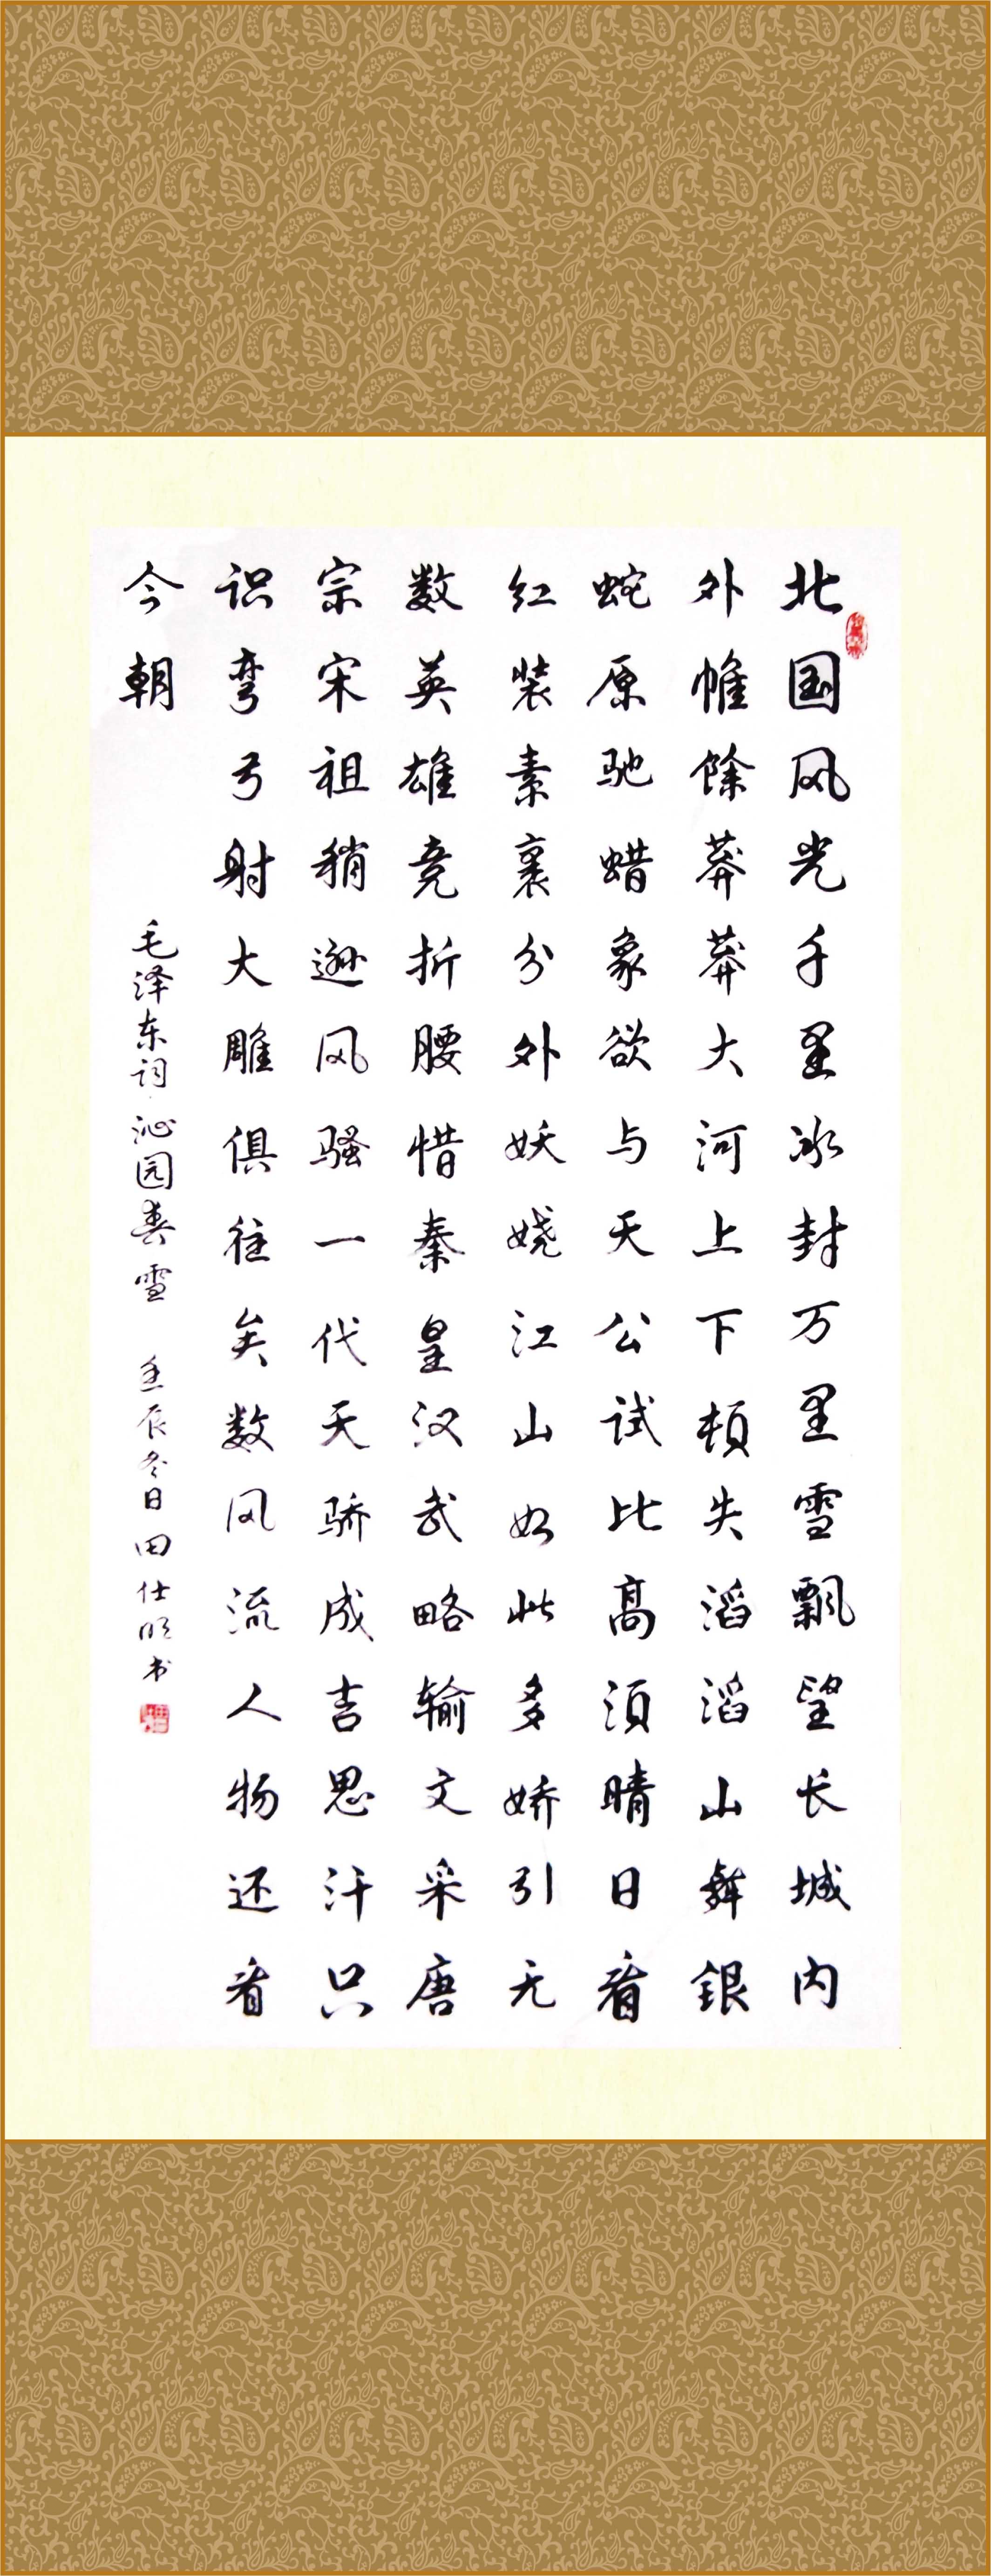 北国风光千里冰封万里雪飘望长城内
外帷餘莽莽大河上下顿失滔滔山舞銀
蛇原驰蜡象欲与天公试比高须晴日看
红装素裹分外妖娆江山如此多娇引无
数英雄竞折腰惜秦皇汉武略输文采唐
宗宋祖稍逊风骚一代天骄成吉思汗只
识弯弓射大雕俱往矣数风流人物还看
今朝
毛泽东词沁园春雪 壬辰冬日田仕明书